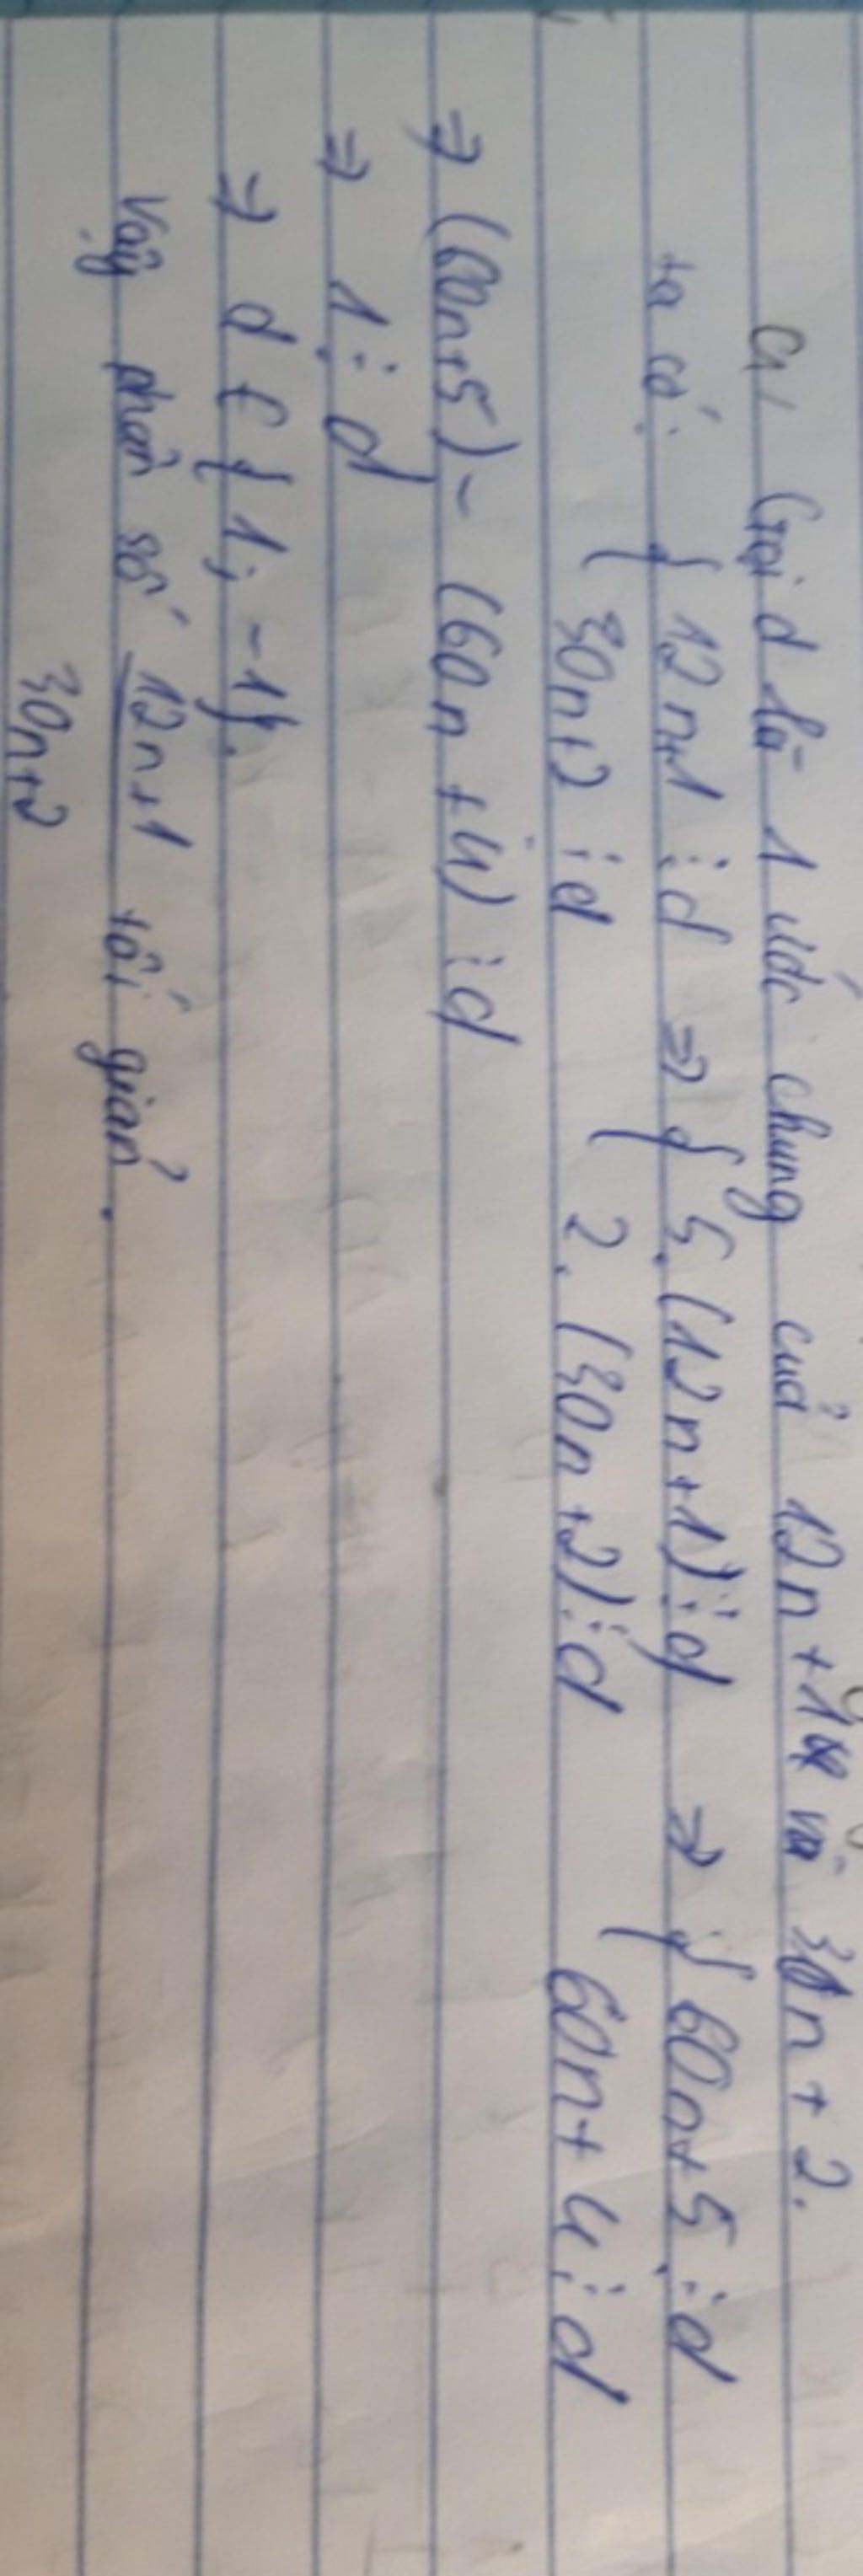 a, Gọi d là 1 ước chung của 12n+1 và 30n+2.
ta có: { 12n+1 ⋮ d => { 5.(12n+1) ⋮ d => { 60n+5 ⋮ d
30n+2 ⋮ d 2.(30n+2) ⋮ d 60n+4 ⋮ d
=> (60n+5) - (60n+4) ⋮ d
=> 1 ⋮ d
=> d ∈ {1; -1}.
Vậy phân số 12n+1 tối giản.
30n+2